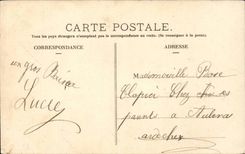 CARTE POSTALE.
Tous les pays étrangers n'acceptent pas la correspondance au recto. (Se renseigner à la poste).
CORRESPONDANCE
ADRESSE
un gros
Lucie
Mademoiselle Rose
Clapier Chez
parents à Aubenas
ardèche